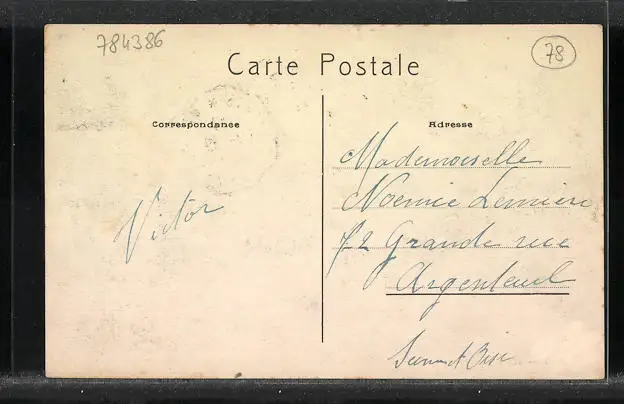 784386
78
Carte Postale
Correspondance
Adresse
Victor
Mademoiselle
Noémie Lemiere
72 Grande rue
Argenteuil
Seine et Oise